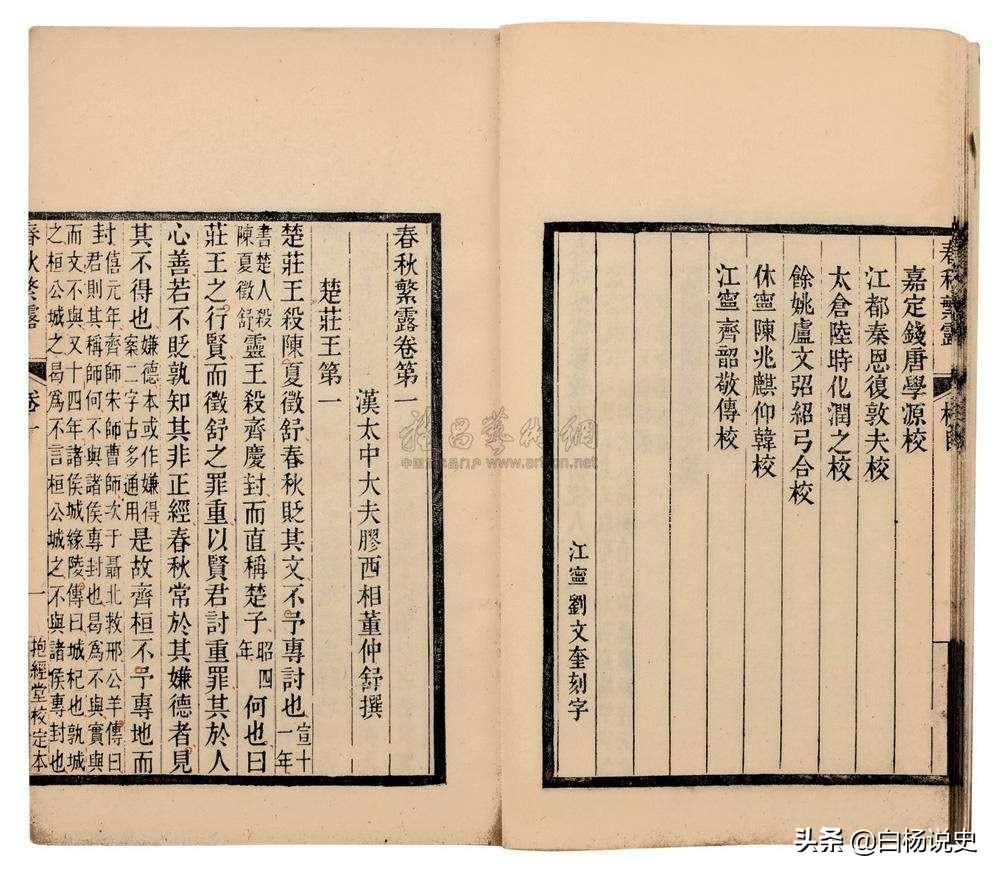 春秋繁露 校勘
嘉定錢唐學源校
江都秦恩復敦夫校
太倉陸時化潤之校
餘姚盧文弨紹弓合校
休寧陳兆麒仰韓校
江寧齊韶敬傳校
江寧劉文奎刻字
春秋繁露卷第一
漢太中大夫膠西相董仲舒撰
楚莊王第一
楚莊王殺陳夏徵舒春秋貶其文不予專討也宣十一年
書楚人殺陳夏徵舒靈王殺齊慶封而直稱楚子昭四年何也曰
莊王之行賢而徵舒之罪重以賢君討重罪其於人
心善若不貶孰知其非正經春秋常於其嫌德者見
其不得也嫌德本或作嫌得案二字古多通用是故齊桓不予專地而
封僖元年齊師宋師曹師次于聶北救邢公羊傳曰
封君則其稱師何不與諸侯專封也曷爲不與實與
而文不與又十四年諸侯城緣陵傳曰城杞也孰城
之桓公城之曷爲不言桓公城之不與諸侯專封也
春秋繁露 卷一 一 抱經堂校定本
福昌藝術網
www.artfon.net
头条 @白杨说史